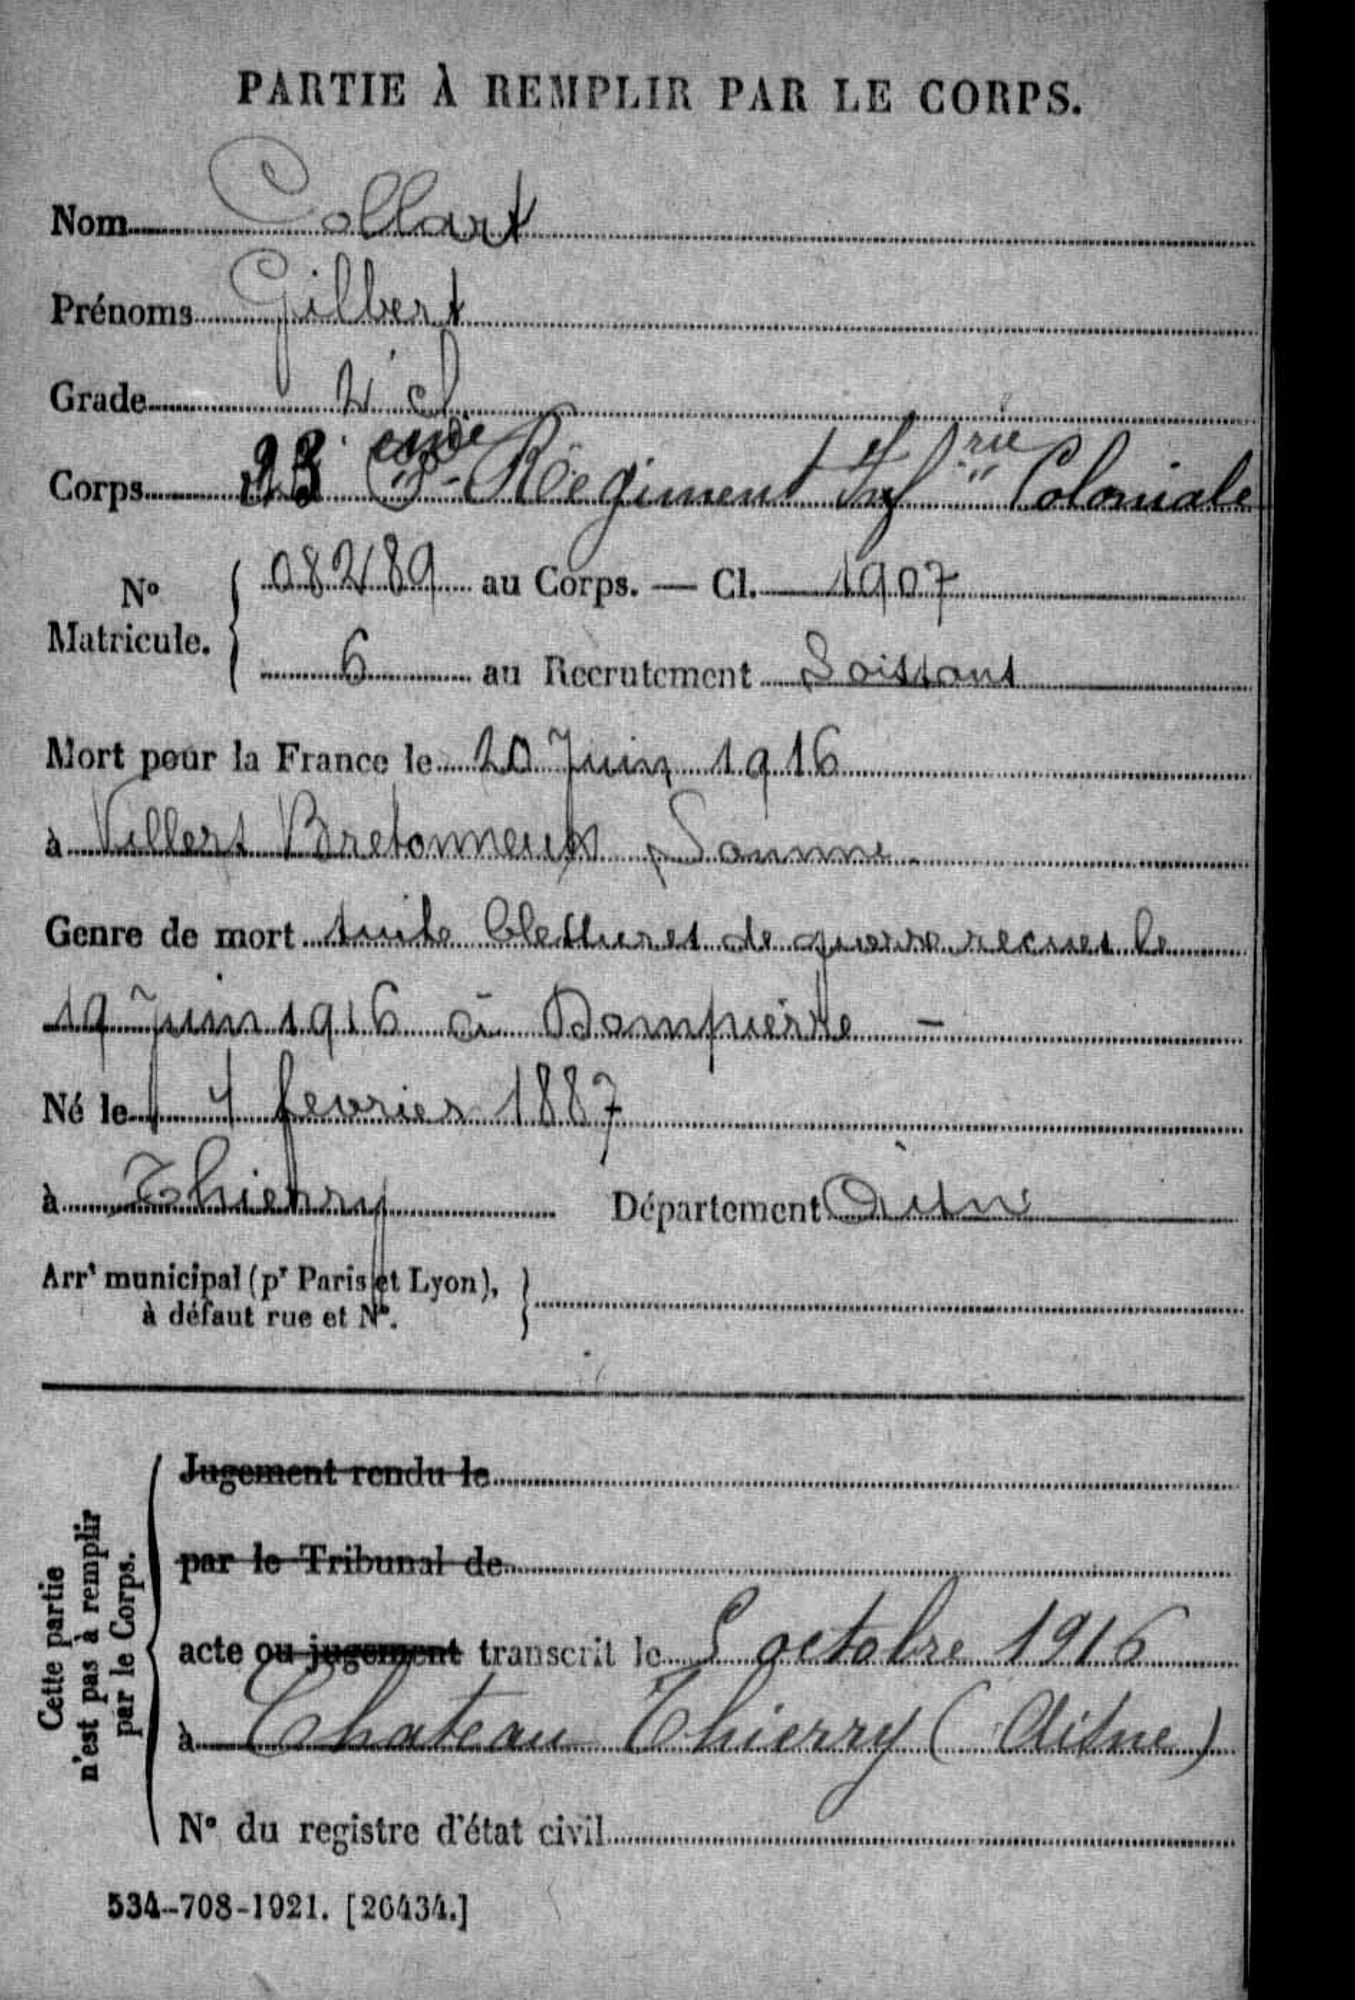 PARTIE À REMPLIR PAR LE CORPS.
Nom Collart
Prénoms Gilbert
Grade 2e cl
Corps 23 Régiment Infrie Coloniale
No Matricule. 082189 au Corps. — Cl. 1907
6 au Recrutement Soissons
Mort pour la France le 20 Juin 1916
à Villers Bretonneux Somme
Genre de mort suite blessures de guerre recues le
19 Juin 1916 à Dompierre –
Né le 4 fevrier 1887
à Thierry Département Aisn
Arrt municipal (pr Paris et Lyon),
à défaut rue et No.
Cette partie
n'est pas à remplir
par le Corps.
Jugement rendu le
par le Tribunal de
acte ou jugement transcrit le 5 octobre 1916
à Chateau Thierry (Aisne)
No du registre d'état civil
534-708-1921. [26434.]